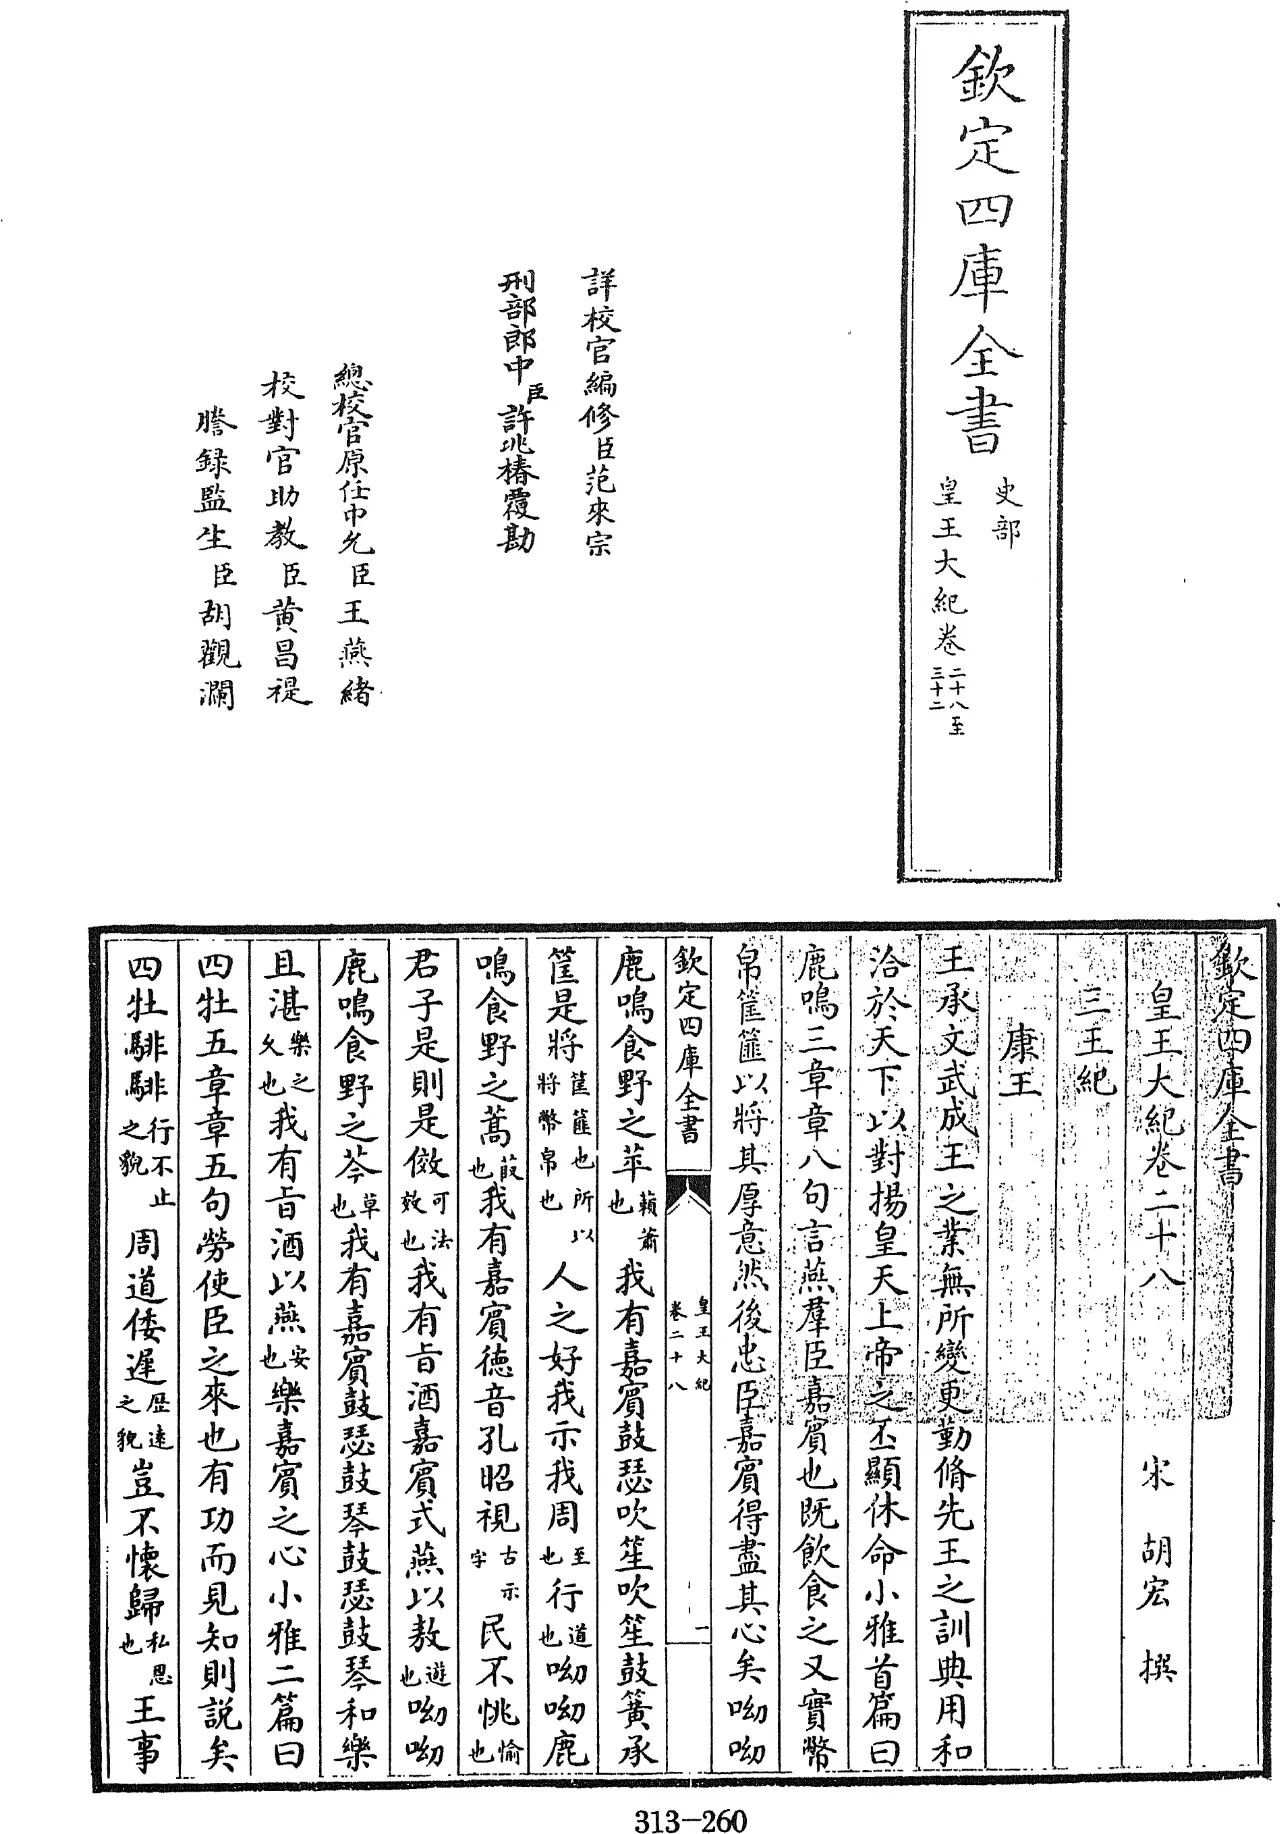 欽定四庫全書
史部
皇王大紀卷二十八至三十二
詳校官編修臣范來宗
刑部郎中臣許兆椿覆勘
總校官原任中允臣王燕緒
校對官助教臣黃昌禔
謄録監生臣胡觀瀾
欽定四庫全書
皇王大紀卷二十八
宋 胡宏 撰
三王紀
康王
王承文武成王之業無所變更勤脩先王之訓典用和
洽於天下以對揚皇天上帝之丕顯休命小雅首篇曰
鹿鳴三章章八句言燕羣臣嘉賓也既飲食之又實幣
帛筐篚以將其厚意然後忠臣嘉賓得盡其心矣呦呦
欽定四庫全書
皇王大紀
卷二十八
一
鹿鳴食野之苹藾蕭也我有嘉賓鼓瑟吹笙吹笙鼓簧承
筐是將筐篚也所以將幣帛也人之好我示我周至也行道也呦呦鹿
鳴食野之蒿菣也我有嘉賓徳音孔昭視古示字民不恌愉也
君子是則是傚可法效也我有旨酒嘉賓式燕以敖遊也呦呦
鹿鳴食野之芩草也我有嘉賓鼓瑟鼓琴鼓瑟鼓琴和樂
且湛樂之久也我有旨酒以燕安也樂嘉賓之心小雅二篇曰
四牡五章章五句勞使臣之來也有功而見知則説矣
四牡騑騑行不止之貌周道倭遲歴逺之貌豈不懷歸私恩也王事
313-260